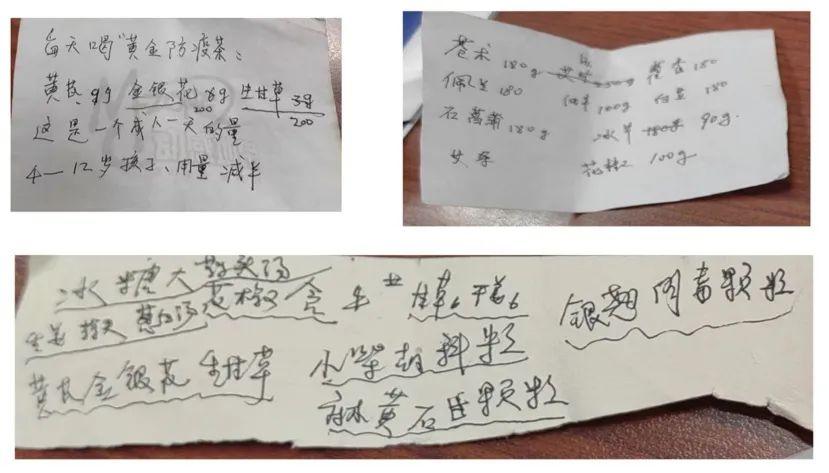 每天喝“黄金防疫茶:
黄芪9g 金银花8g 生甘草3g
200 200
这是一个成人一天的量
4-12岁孩子、用量减半
苍术180g 藿香180
佩兰180 100g 白芷180
石菖蒲180g 冰片 90g.
艾草 花椒 100g
冰糖大蒜头汤
花椒
葱白汤
黄芪金银花生甘草
小柴胡颗粒
麻黄石甘颗粒
银翘 颗粒